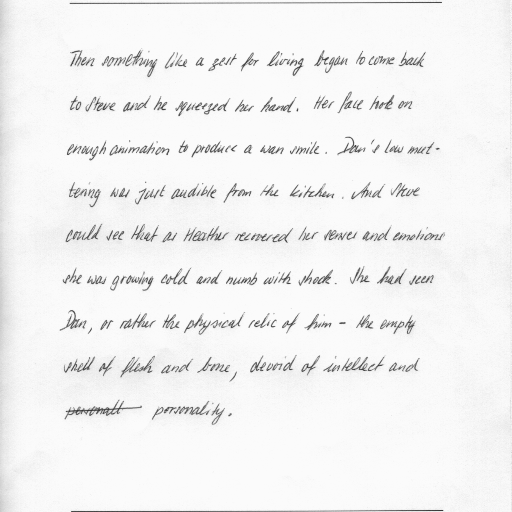 Then something like a zest for living began to come back
to Steve and he squeezed her hand. Her face took on
enough animation to produce a wan smile. Dan's low mut-
tering was just audible from the kitchen. And Steve
could see that as Heather recovered her senses and emotions
she was growing cold and numb with shock. She had seen
Dan, or rather the physical relic of him - the empty
shell of flesh and bone, devoid of intellect and
personality.